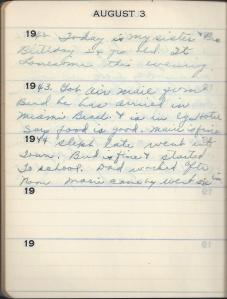 AUGUST 3
19 Today is my sister
Birthday
Lonesome this evening.
1943. Got air mail from
Bud he has arrived in
Miami Beach & is in Hotel
Says food is good. Marie is fine
1944 Slept late went to
Town. Bud is fine & started
To school. Dad worked after
noon Marie came by went
19
19